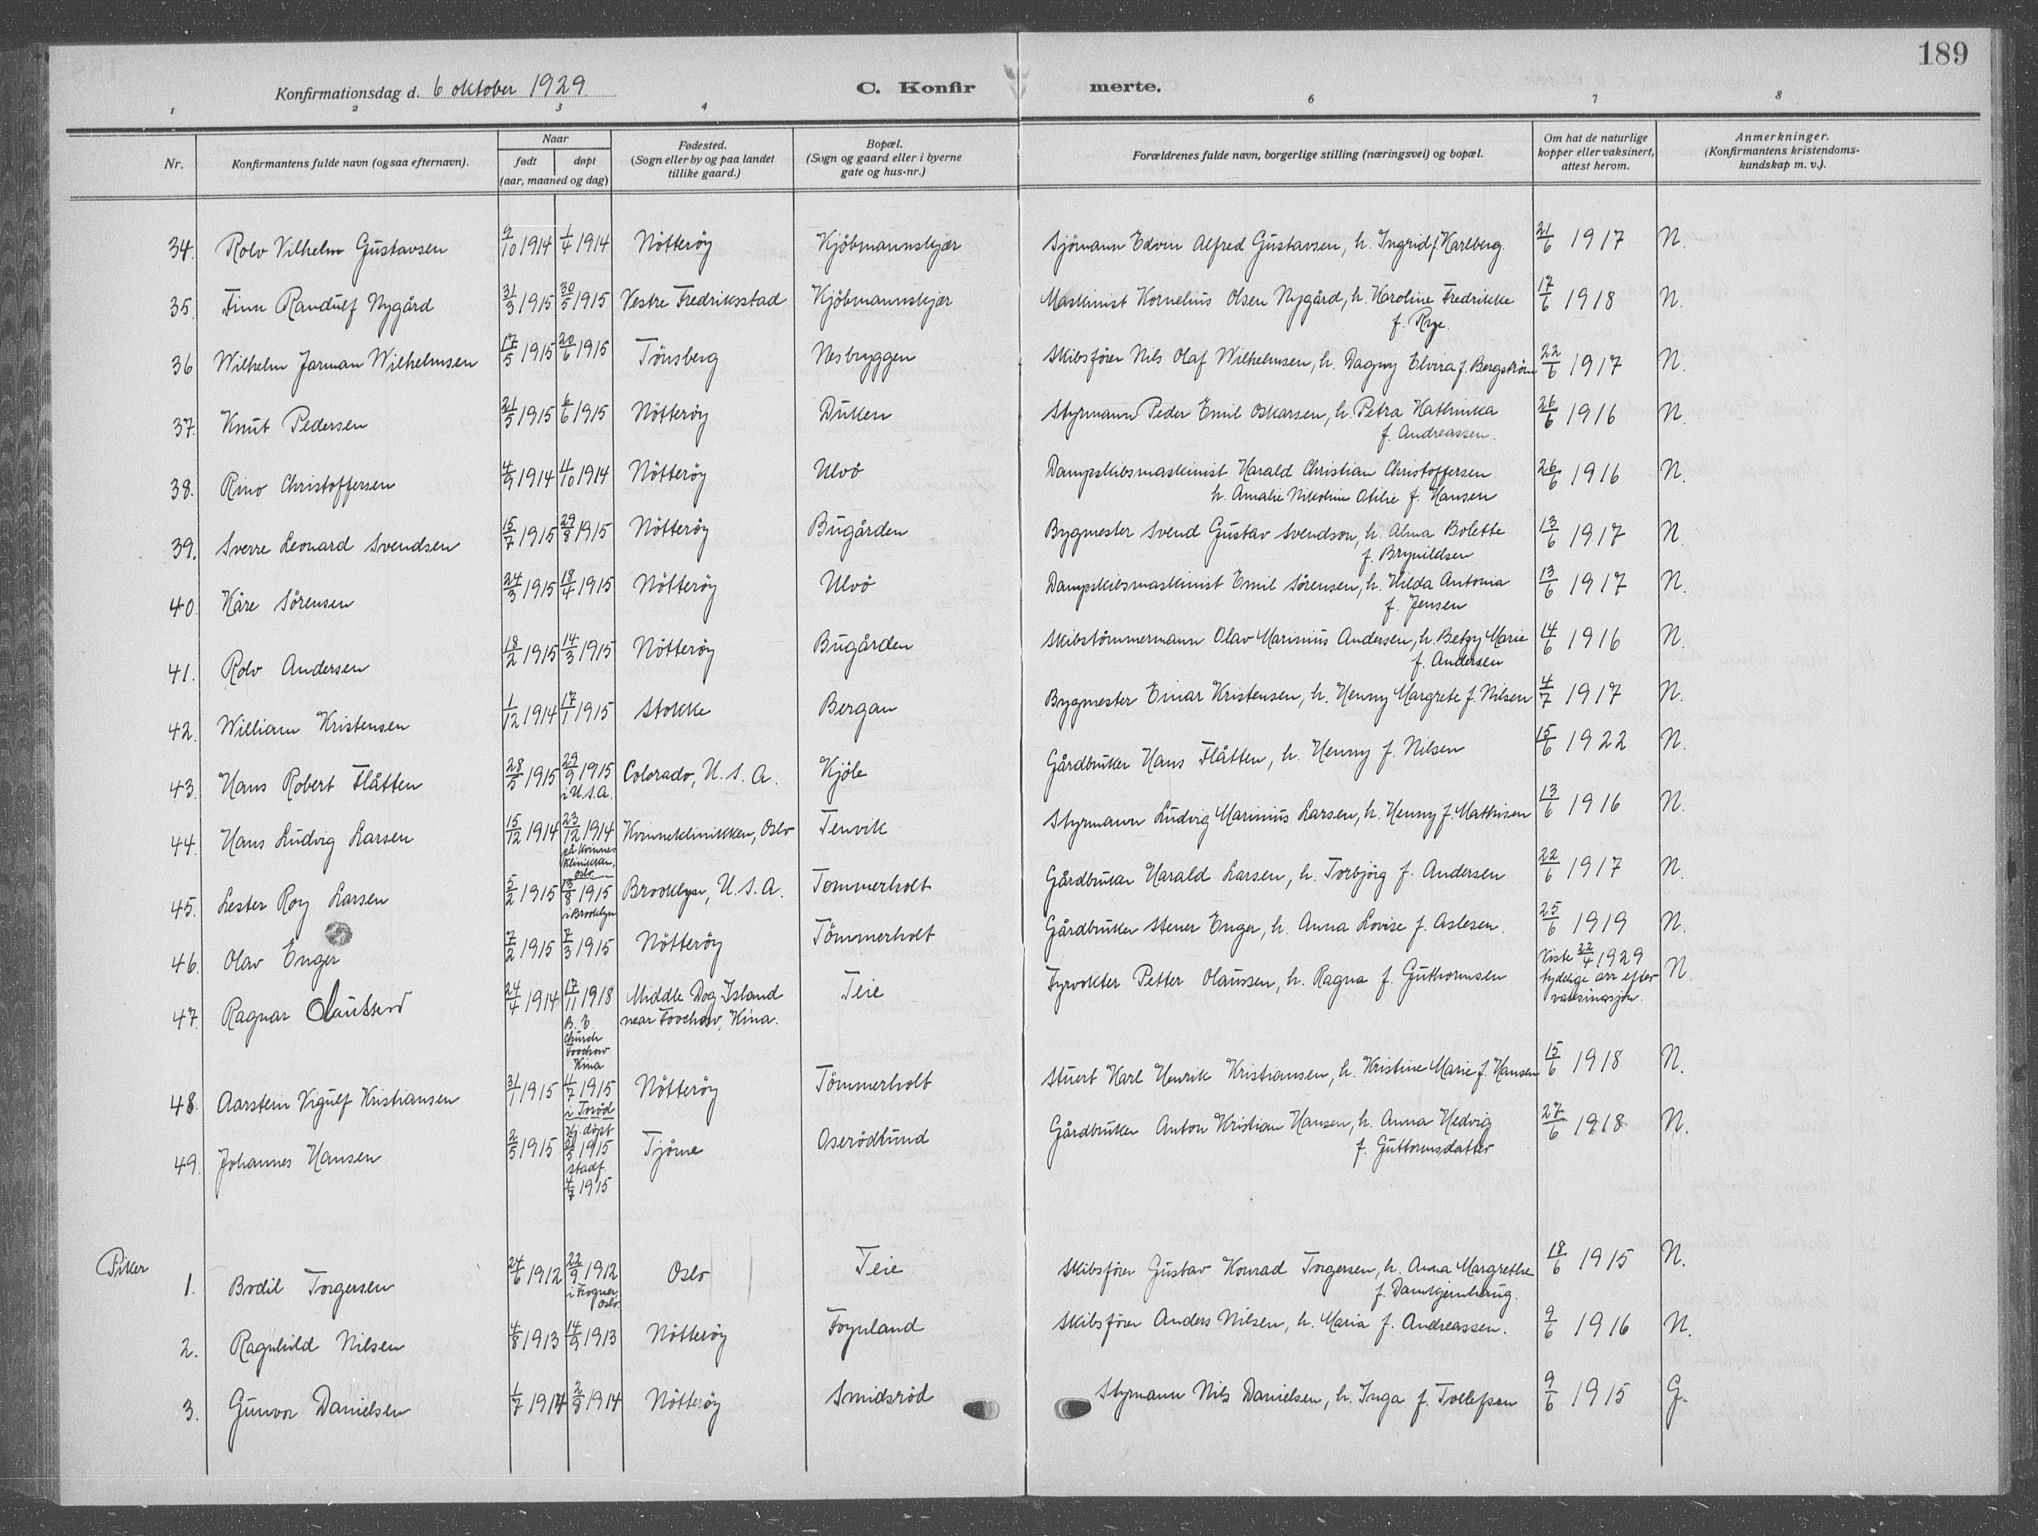 189
Konfirmationsdag d. 6 oktober 1929
C. Konfirmerte.
1 2 3 4 6 7 8
Nr. Konfirmantens fulde navn (ogsaa efternavn). Naar født døpt (aar, maaned og dag) Fødested. (Sogn eller by og paa landet tillike gaard.) Bopæl. (Sogn og gaard eller i byerne gate og hus-nr.) Forældrenes fulde navn, borgerlige stilling (næringsvei) og bopæl. Om hat de naturlige kopper eller vaksinert, attest herom. Anmerkninger. (Konfirmantens kristendoms-kundskap m. v.).
34. Rolv Vilhelm Gustavsen 9/10 1914 1/4 1914 Nötteröy Kjöbmannskjær Sjömann Edvin Alfred Gustavsen, h. Ingrid f. Karlberg. 21/6 1917 N.
35. Finn Randulf Nygård 31/3 1915 30/5 1915 Vestre Fredriksstad Kjöbmannskjær Maskinist Kornelius Olsen Nygård, h. Karoline Fredrikke f. Rye. 17/6 1918 N.
36 Wilhelm Jarman Wilhelmsen 17/5 1915 20/6 1915 Tönsberg Nesbryggen Skibsförer Nils Olaf Wilhelmsen, h. Dagny Elvira f. Bergström 22/6 1917 N.
37. Knut Pedersen 21/5 1915 6/6 1915 Nötteröy Duken Styrmann Peder Emil Oskarsen, h. Petra Kathinka f. Andreassen. 26/6 1916 N.
38. Rino Christoffersen 4/9 1914 4/10 1914 Nötteröy Ulvö Dampskibsmaskinist Harald Christian Christoffersen h. Amalie Nikoline Otilie f. Hansen 26/6 1916 N.
39. Sverre Leonard Svendsen 15/7 1915 29/8 1915 Nötteröy Bugården Bygmester Svend Gustav Svendson, h. Alma Bolette f. Brynildsen 13/6 1917 N.
40. Kåre Sörensen 24/3 1915 18/4 1915 Nötteröy Ulvö Dampskibsmaskinist Emil Sörensen, h. Hilda Antonia f. Jensen 13/6 1917 N.
41. Rolv Andersen 18/2 1915 14/3 1915 Nötteröy Bugården Skibstömmermann Olav Marinius Andersen, h. Betzy Marie f. Andersen 14/6 1916 N.
42. William Kristensen 1/12 1914 17/1 1915 Stokke Bergan Bygmester Einar Kristensen, h. Henny Margrete f. Nilsen 4/7 1917 N.
43. Hans Robert Flåtten 28/5 1915 29/9 1915 i U.S.A. Colorado, U.S.A. Kjöle Gårdbruker Hans Flåtten, h. Henny f. Nilsen 15/6 1922 N.
44. Hans Ludvig Larsen 15/12 1914 23/12 1914 på Kvinneklinikken, Oslo Kvinneklinikken, Oslo Tenvik Styrmann Ludvig Marinius Larsen, h. Henny f. Mathisen 13/6 1916 N.
45. Lester Roy Larsen 5/2 1915 13/8 1915 i Brooklyn Brooklyn, U.S.A. Tømmerholt Gårdbruker Harald Larsen, h. Torbjörg f. Andersen 22/6 1917 N.
46. Olav Enger 7/2 1915 7/3 1915 Nötteröy Tömmerholt Gårdbruker Stener Enger, h. Anna Lovise f. Aslesen. 25/6 1919 N.
47. Ragnar 24/4 1914 17/11 1918 B. E. Church Foochow Kina Middle Dog Island near Foochow, Kina. Teie Fyrvokter Petter Olaussen, h. Ragna f. Guthormsen Viste 22/4 1929 tydelige arr efter vaksinasjon. N.
48. Aarstein Vigulf Kristiansen 31/1 1915 4/7 1915 i Torød Nötteröy Tömmerholt Stuert Karl Henrik Kristiansen, h. Kristine Marie f. Hansen 15/6 1918 N.
49. Johannes Hansen 2/5 1915 Hj. döpt 1915 stadf. 4/7 1915 Tjöme Oserödkund Gårdbruker Anton Kristian Hansen, h. Anna Hedvig f. Guttormsdatter 27/6 1918 N.
Piker
1. Bodil Torgersen 24/6 1912 22/9 1912 i Frogner Oslo Oslo Teie Skibsförer Gustav Konrad Torgersen, h. Anna Margrethe 18/6 1915 N.
2. Ragnhild Nilsen 4/8 1913 14/9 1913 Nötteröy Föynland Skibsförer Anders Nilsen, h. Maria f. Andreassen. 9/6 1916 N.
3. Gunvor Danielsen 1/7 1914 2/8 1914 Nötteröy Smidsröd Styrmann Nils Danielsen, h. Inga f. Tollefsen 9/6 1915 G.